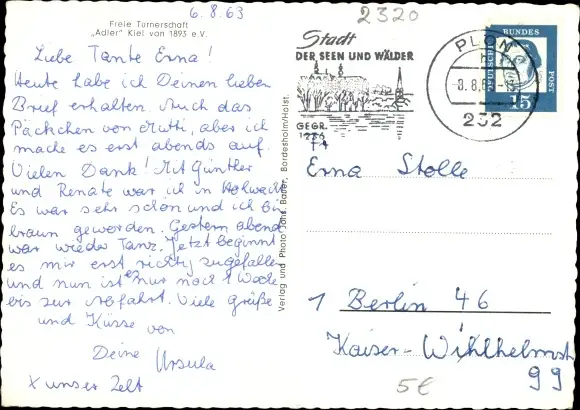 6.8.63
2320
Freie Turnerschaft
„Adler" Kiel von 1893 e.V.
Liebe Tante Erna!
Heute habe ich Deinen lieben
Brief erhalten. Auch das
Päckchen von Mutti, aber ich
mache es erst abends auf.
Vielen Dank! Mit Günther
und Renate war ich in Hohwacht.
Es war sehr schön und ich bin
braun geworden. Gestern abend
war wieder Tanz. Jetzt beginnt
es mir erst richtig zu gefallen
und nun ist es nur noch 1 Woche
bis zur Abfahrt. Viele Grüße
und Küsse von
Deine Ursula
X unser Zelt
Verlag und Photo Johs. Bauer, Bordesholm/Holst.
Stadt
DER SEEN UND WÄLDER
GEGR.
1236
PLÖN
232
DEUTSCHE
BUNDES
POST
15
Erna Stolle
1 Berlin 46
Kaiser-Wihlhelmstr
99
5€